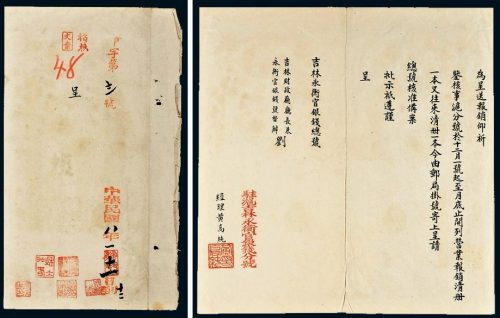 字第 號
48
呈
中華民國
為呈送報銷仰祈
鑒核事滬分號於十二月一號起至月底止開列營業報銷清册
一本又往來清册一本今由郵局掛號寄上呈請
總號核准備案
批示祇遵謹
呈
吉林永衡官銀錢總號
吉林財政廳廳長
永衡官銀錢督辦 劉
駐滬吉林永衡官銀錢分號
經理黃